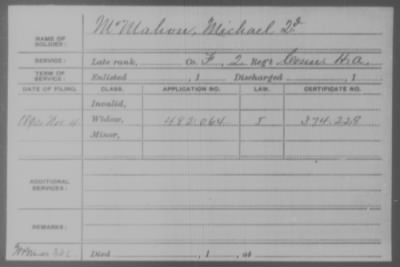 NAME OF SOLDIER: McMahon, Michael 2d
SERVICE: Late rank, Co. F, 2 Reg't Conn H.A.
TERM OF SERVICE: Enlisted , 1 Discharged , 1
DATE OF FILING. CLASS. APPLICATION NO. LAW. CERTIFICATE NO.
Invalid,
Nov. 4 Widow, 482.064 5 374.228
Minor,
ADDITIONAL SERVICES:
REMARKS:
Died , 1 , at